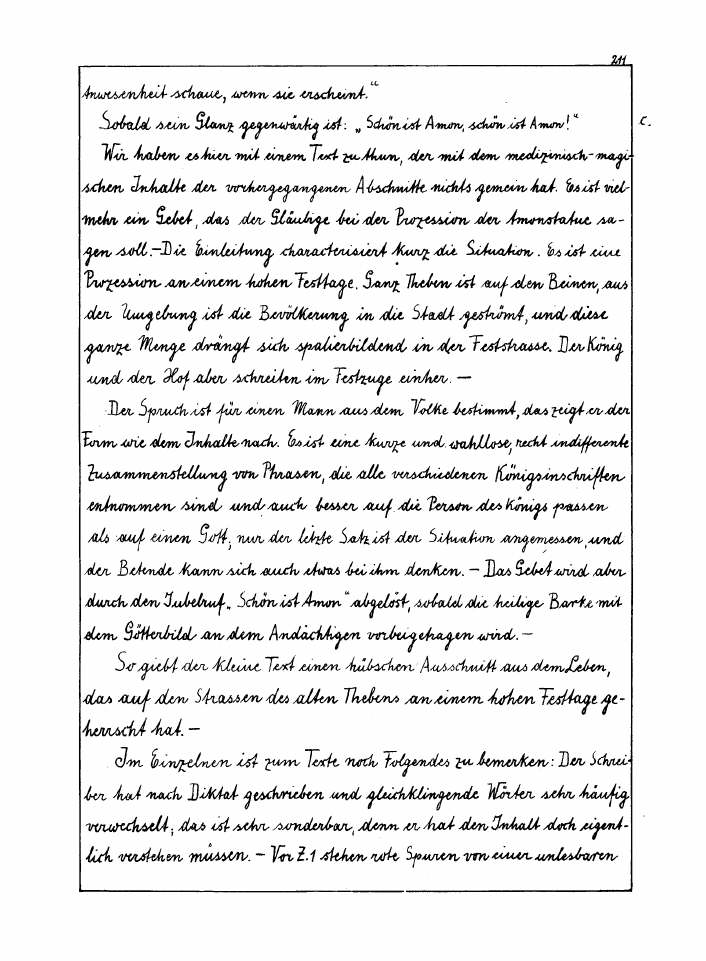 211
Anwesenheit schaue, wenn sie erscheint."
Sobald sein Glanz gegenwärtig ist: „Schön ist Amon, schön ist Amon!" C.
Wir haben es hier mit einem Text zu thun, der mit dem medizinisch-magi-
schen Inhalte der vorhergegangenen Abschnitte nichts gemein hat. Es ist viel-
mehr ein Gebet, das der Gläubige bei der Prozession der Amonstatue sa-
gen soll.–Die Einleitung characterisiert kurz die Situation. Es ist eine
Prozession an einem hohen Festtage. Ganz Theben ist auf den Beinen, aus
der Umgebung ist die Bevölkerung in die Stadt geströmt, und diese
ganze Menge drängt sich spalierbildend in der Feststrasse. Der König
und der Hof aber schreiten im Festzuge einher. –
Der Spruch ist für einen Mann aus dem Volke bestimmt, das zeigt er der
Form wie dem Inhalte nach. Es ist eine kurze und wahllose, recht indifferente
Zusammenstellung von Phrasen, die alle verschiedenen Königsinschriften
entnommen sind und auch besser auf die Person des Königs passen
als auf einen Gott; nur der letzte Satz ist der Situation angemessen, und
der Betende kann sich auch etwas bei ihm denken. – Das Gebet wird aber
durch den Jubelruf „Schön ist Amon" abgelöst, sobald die heilige Barke mit
dem Götterbild an dem Andächtigen vorbeigetragen wird. –
So giebt der kleine Text einen hübschen Ausschnitt aus dem Leben,
das auf den Strassen des alten Thebens an einem hohen Festtage ge-
herrscht hat. –
Im Einzelnen ist zum Texte noch Folgendes zu bemerken: Der Schrei-
ber hat nach Diktat geschrieben und gleichklingende Wörter sehr häufig
verwechselt; das ist sehr sonderbar, denn er hat den Inhalt doch eigent-
lich verstehen müssen. – Vor Z.1 stehen rote Spuren von einer unlesbaren